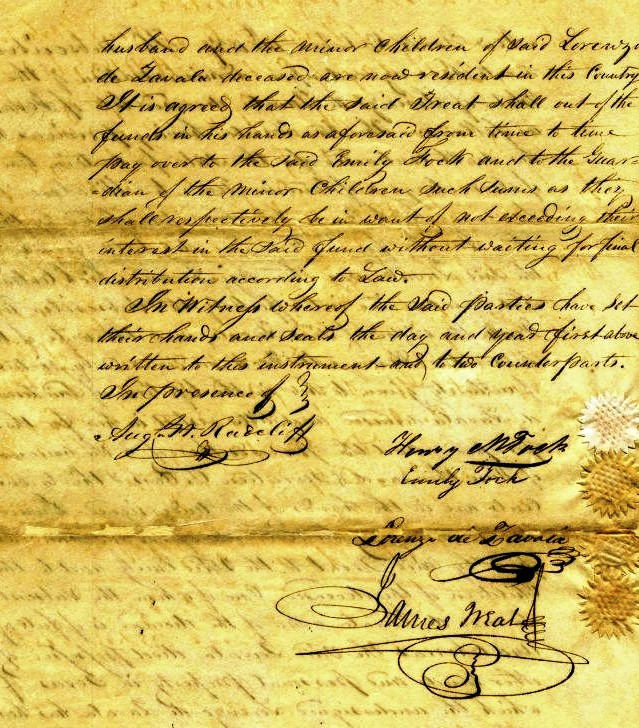 husband and the minor Children of said Lorenzo
de Zavala deceased are now resident in this Country
It is agreed that the said Treat shall out of the
funds in his hands as aforesaid from time to time
pay over to the said Emily Fock and to the Guar=
=dian of the minor Children such sums as they
shall respectively be in want of not exceeding their
interest in the said fund without waiting for final
distribution according to Law.
In Witness whereof the said parties have set
their hands and seals the day and year first above
written to this instrument and to two Counterparts.
In presence of
Aug. W. Radcliff
Henry M Fock
Emily Fock
Lorenzo de Zavala
James Treat